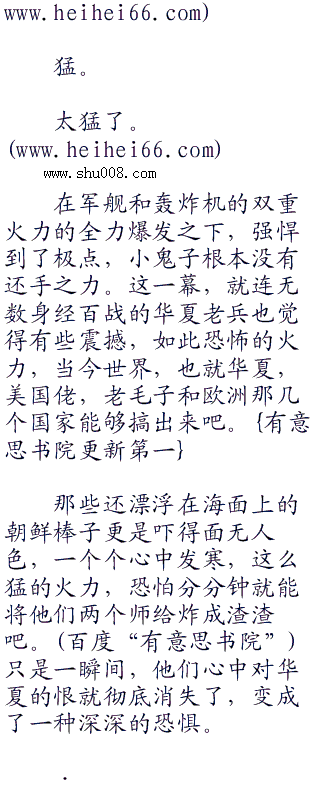 www.heihei66.com)
猛。
太猛了。
(www.heihei66.com)
www.shu008.com
在军舰和轰炸机的双重
火力的全力爆发之下，强悍
到了极点，小鬼子根本没有
还手之力。这一幕，就连无
数身经百战的华夏老兵也觉
得有些震撼，如此恐怖的火
力，当今世界，也就华夏，
美国佬，老毛子和欧洲那几
个国家能够搞出来吧。{有意
思书院更新第一}
那些还漂浮在海面上的
朝鲜棒子更是吓得面无人
色，一个个心中发寒，这么
猛的火力，恐怕分分钟就能
将他们两个师给炸成渣渣
吧。(百度“有意思书院”)
只是一瞬间，他们心中对华
夏的恨就彻底消失了，变成
了一种深深的恐惧。
.